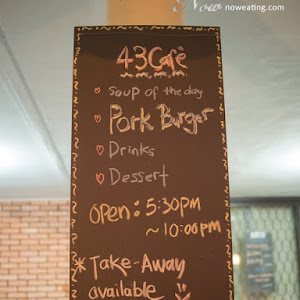 Now noweating.com
43Cafe
Soup of the day
Pork Burger
Drinks
Dessert
Open: 5:30pm
~ 10:00pm
* Take-Away
available